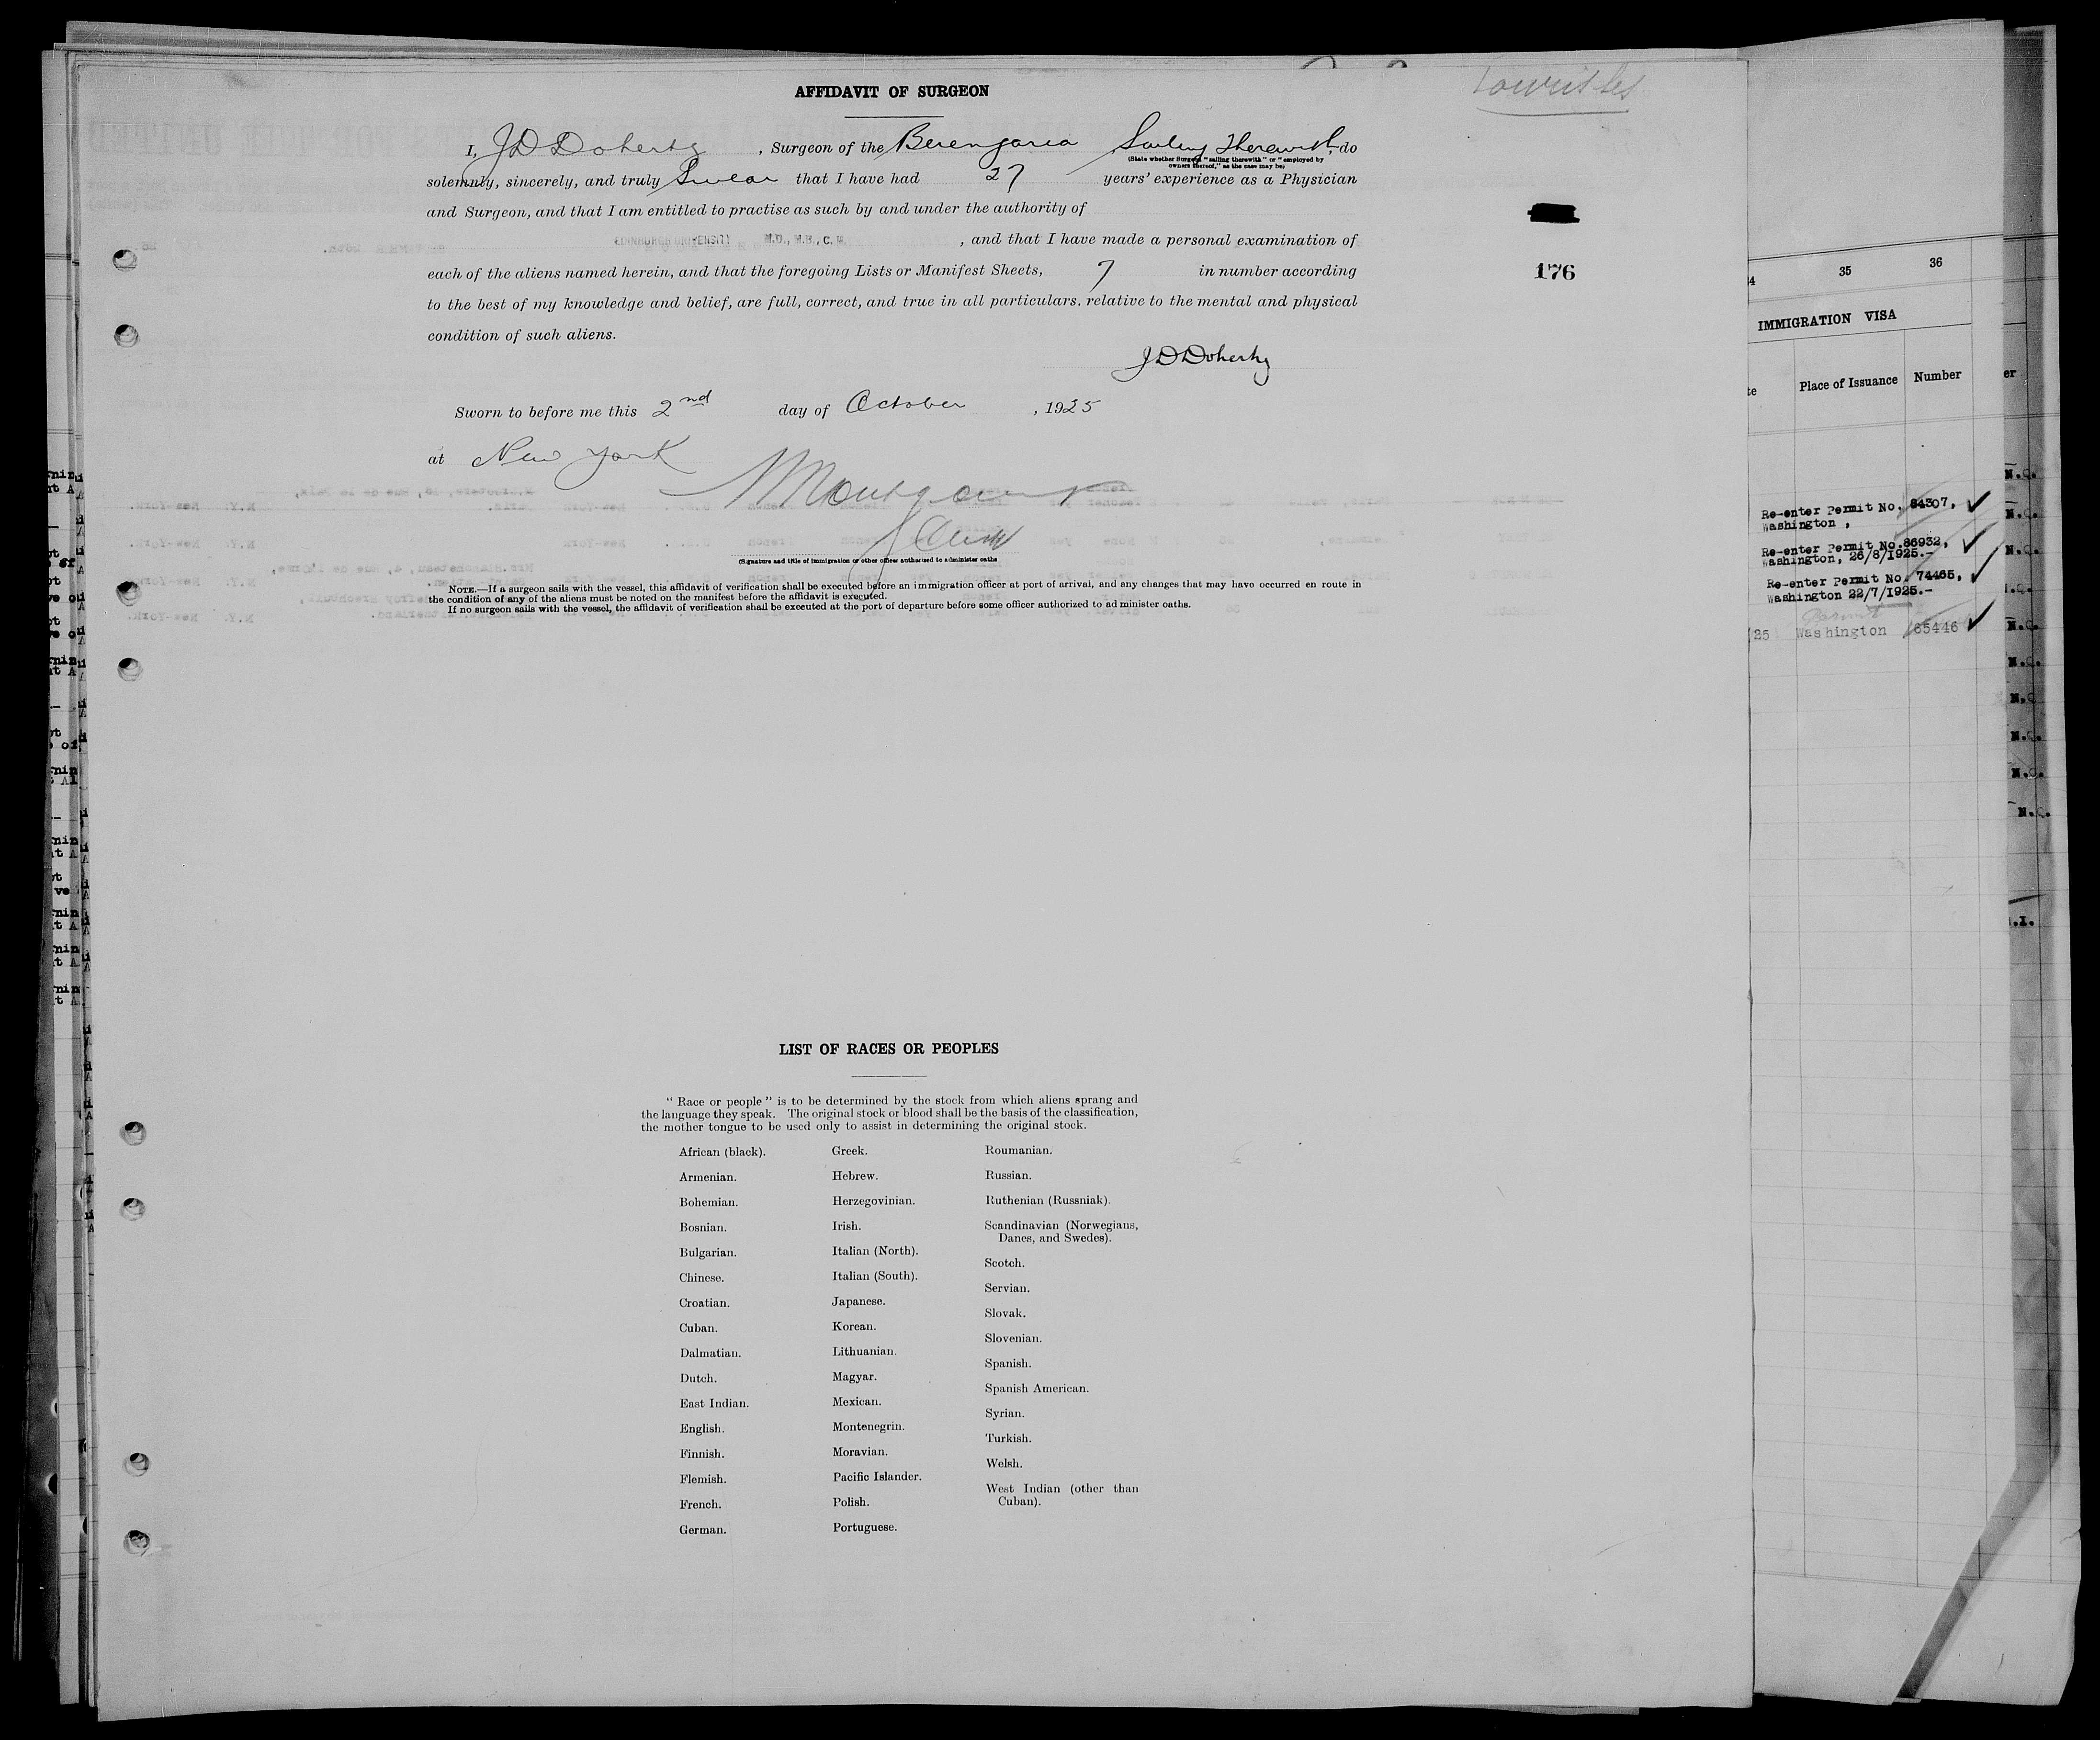 Tourists
AFFIDAVIT OF SURGEON
I, J D Doherty, Surgeon of the Berengaria Sailing Therewith, do
(State whether Surgeon "sailing therewith" or "employed by
owners thereof," as the case may be)
solemnly, sincerely, and truly Swear that I have had 27 years' experience as a Physician
and Surgeon, and that I am entitled to practise as such by and under the authority of
EDINBURGH UNIVERSITY M.D., M.B., C.M. , and that I have made a personal examination of
each of the aliens named herein, and that the foregoing Lists or Manifest Sheets, 7 in number according
to the best of my knowledge and belief, are full, correct, and true in all particulars, relative to the mental and physical
condition of such aliens.
J D Doherty
Sworn to before me this 2nd day of October, 1925
at New York
(Signature and title of immigration or other officer authorised to administer oaths
NOTE.—If a surgeon sails with the vessel, this affidavit of verification shall be executed before an immigration officer at port of arrival, and any changes that may have occurred en route in
the condition of any of the aliens must be noted on the manifest before the affidavit is executed.
If no surgeon sails with the vessel, the affidavit of verification shall be executed at the port of departure before some officer authorized to administer oaths.
176
LIST OF RACES OR PEOPLES
"Race or people" is to be determined by the stock from which aliens sprang and
the language they speak. The original stock or blood shall be the basis of the classification,
the mother tongue to be used only to assist in determining the original stock.
African (black).
Armenian.
Bohemian.
Bosnian.
Bulgarian.
Chinese.
Croatian.
Cuban.
Dalmatian.
Dutch.
East Indian.
English.
Finnish.
Flemish.
French.
German.
Greek.
Hebrew.
Herzegovinian.
Irish.
Italian (North).
Italian (South).
Japanese.
Korean.
Lithuanian.
Magyar.
Mexican.
Montenegrin.
Moravian.
Pacific Islander.
Polish.
Portuguese.
Roumanian.
Russian.
Ruthenian (Russniak).
Scandinavian (Norwegians,
Danes, and Swedes).
Scotch.
Servian.
Slovak.
Slovenian.
Spanish.
Spanish American.
Syrian.
Turkish.
Welsh.
West Indian (other than
Cuban).
35 36
IMMIGRATION VISA
Place of Issuance Number
Re-enter Permit No. 84307,
Washington,
Re-enter Permit No. 86932,
Washington, 26/8/1925.-
Re-enter Permit No. 74465,
Washington 22/7/1925.-
Permit
25 Washington 65446